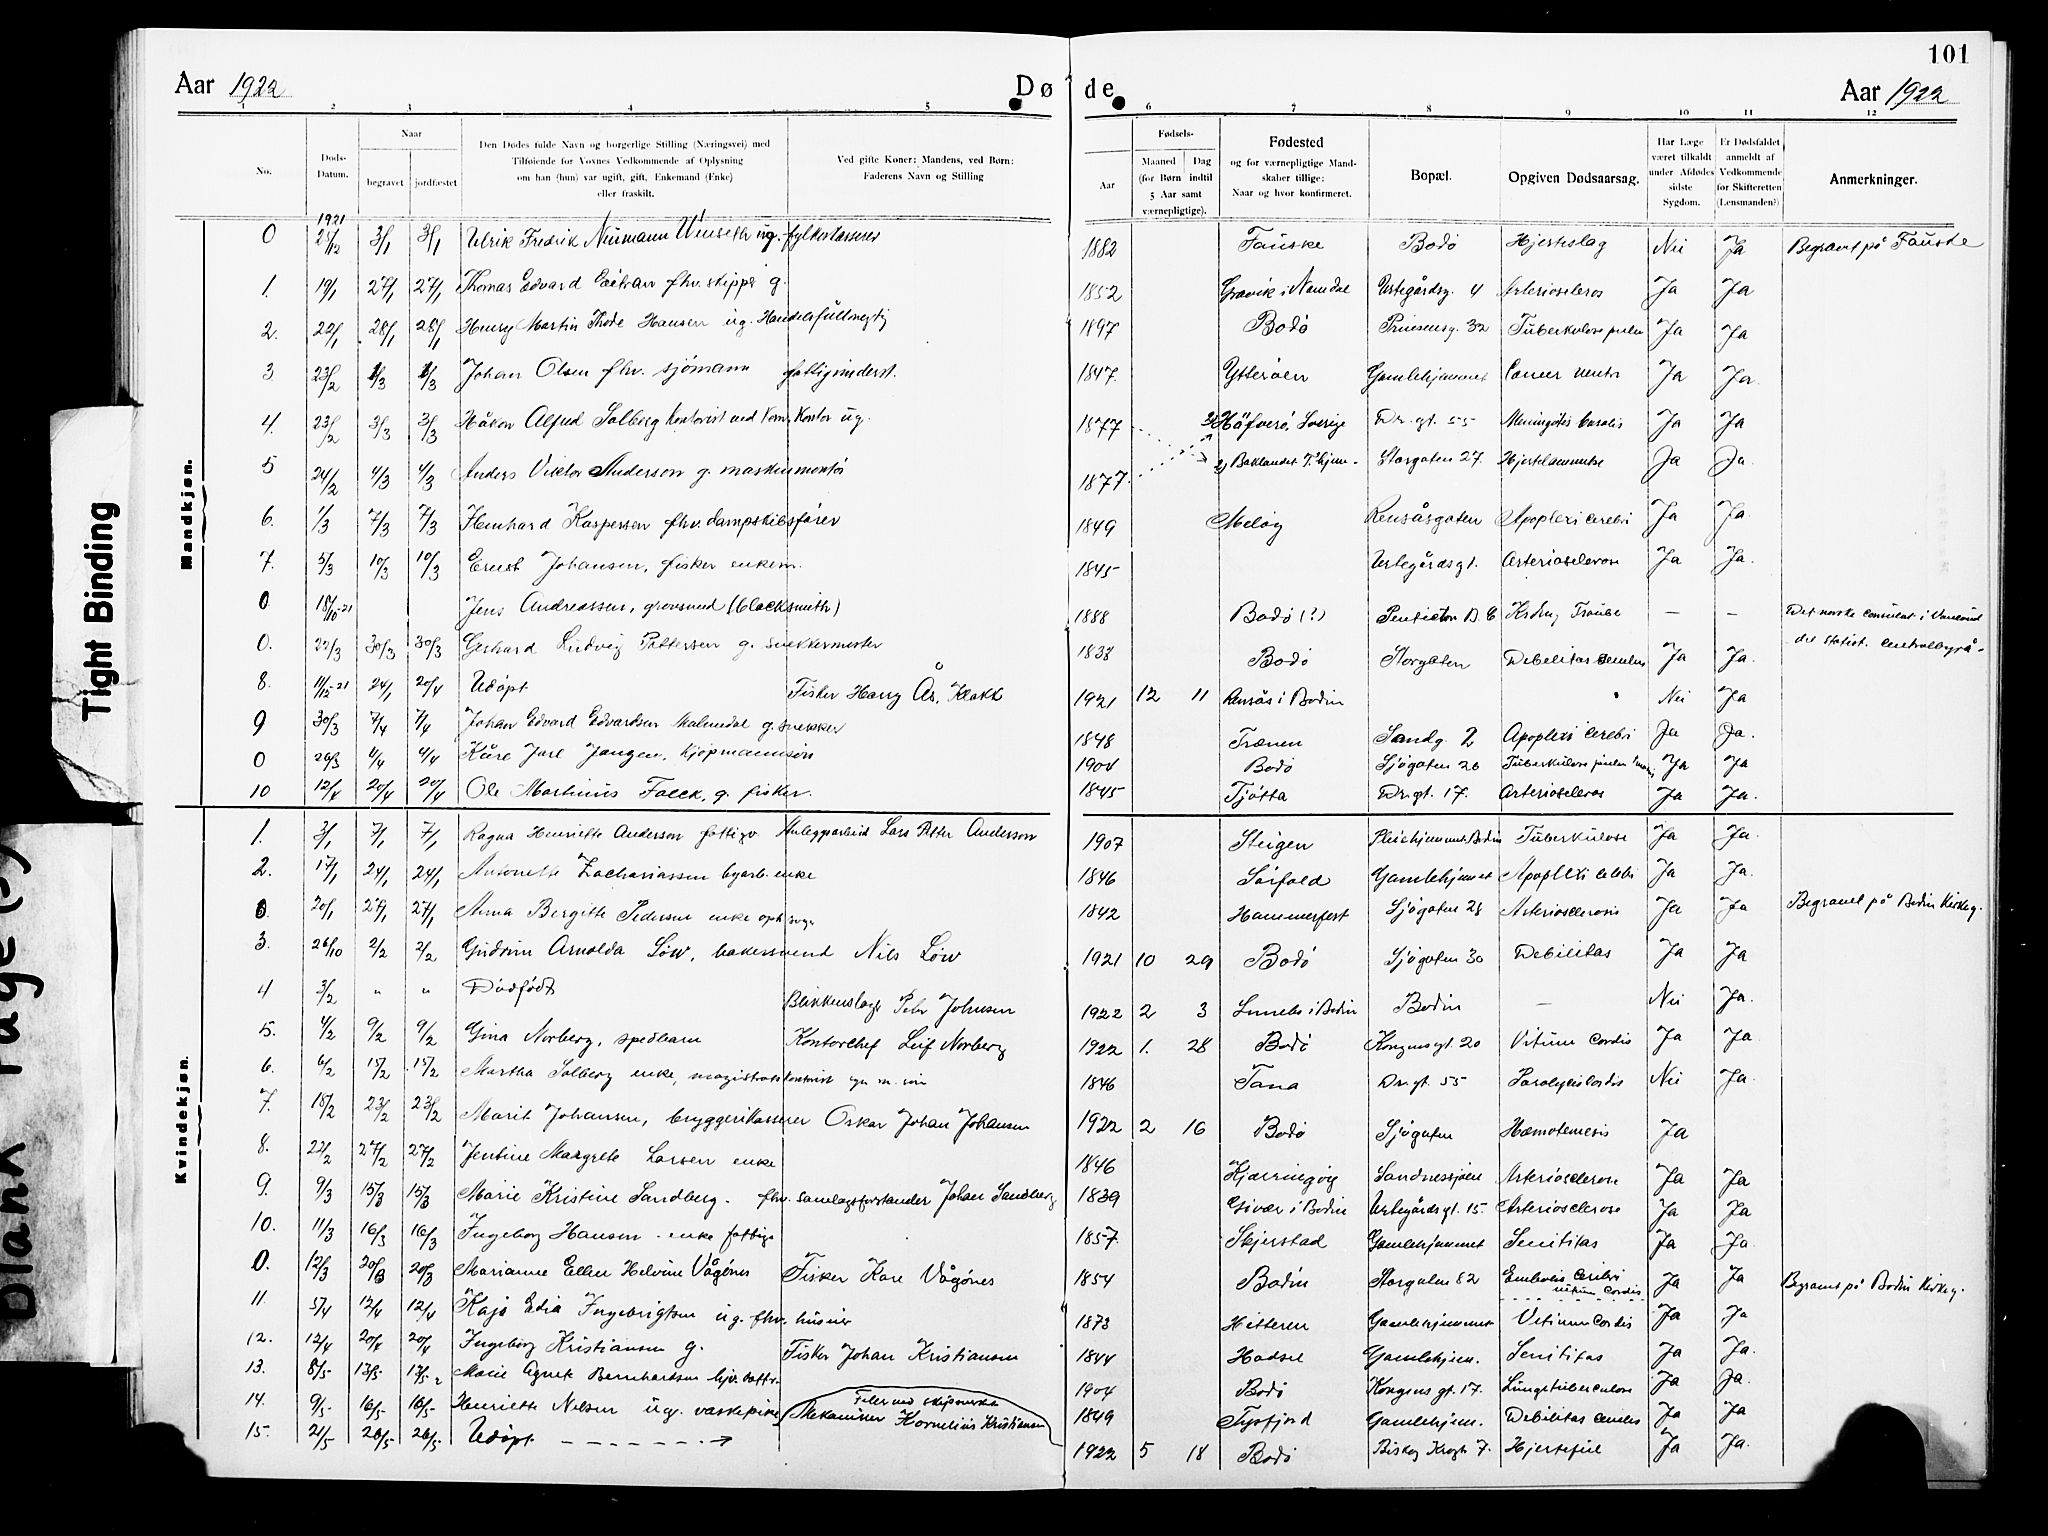 101
Aar 1922 Døde Aar 1922
1 2 3 4 5 6 7 8 9 10 11 12
No. Døds-Datum. Naar begravet jordfæstet Den Dødes fulde Navn og borgerlige Stilling (Næringsvei) med Tilføiende for Voxnes Vedkommende af Oplysning om han (hun) var ugift, gift, Enkemand (Enke) eller fraskilt. Ved gifte Koner: Mandens, ved Børn: Faderens Navn og Stilling Fødsels- Aar Maaned Dag (for Børn indtil 5 Aar samt værnepligtige). Fødested og for værnepligtige Mandskaber tillige: Naar og hvor konfirmeret. Bopæl. Opgiven Dødsaarsag. Har Læge været tilkaldt under Afdødes sidste Sygdom. Er Dødsfaldet anmeldt af Vedkommende for Skifteretten (Lensmanden? Anmerkninger.
Mandkjøn.
0 1921 3/1 3/1 Ulrik Fredrik Neumann ug. fylkeskasserer 1882 Fauske Bodø Hjerteslag Nei Ja Begravt på Fauske
1. 19/1 27/1 27/1 Thomas Edvard fhv. skipper g. 1852 Gravik i Namdal Urtegårdsg. 4 Arterioscleros Ja Ja
2. 22/1 28/1 28/1 Henry Martin Thode Hansen ug. Handelsfullmegtig 1897 Bodø Prinsensg. 32 Tuberkulose pulm Ja Ja
3 23/2 1/3 1/3 Johan Olsen fhv. sjømann fattigunderst. 1847. Ytterøen Gamlehjemmet Cancer ventr Ja Ja.
4. 23/2 3/3 3/3 Håkon Alfred Solberg Kontorist ved Kontor ug. 1877 Häfverö, Sverige Dr. gt. 55 Meningitis Ja Ja
5 24/2 4/3 4/3 Anders Viktor Anderson g. maskinmontør 1877. 2) Baklandet T.hjem Storgaten 27. Hjertelammelse Ja Ja.
6. 1/3 7/3 7/3 Kaspersen fhv. dampskibsfører 1849 Meløy Rensåsgaten Apoplexi cerebri Ja Ja.
7. 5/3 10/3 10/3 Ernst Johansen, fisker enkem. 1845 Urtegårdsgt. Arteriosclerose Ja Ja.
0 18/10-21 Jens Andreassen, grovsmed (blacksmith) 1888 Bodø (?) Penticton B.C — — Det norske consulat i
0. 22/3 30/3 30/3 Gerhard Ludvig Pettersen g. snekkermester 1838 Bodø Storgaten Debilitas senilis Ja Ja. det statist. centralbyrå.
8. 11/12-21 24/1 20/4 Udøpt Fisker Harry År. Klakk 1921 12 11 Rensås i Bodin Nei Ja
9 30/3 7/4 7/4 Johan Edvard Edvardsen Malmedal g. snekker 1848 Trænen Sandg. 2 Apoplexi cerebri Ja Ja.
0 29/3 4/4 4/4 Kåre Jarl Jangen, kjøpmannssøn 1904 Bodø Sjøgaten 26 Tuberkulose pulm Ja Ja
10 12/4 20/4 20/4 Ole Martinus Falck, g. fisker. 1845 Tjøtta Dr. gt. 17. Arterioscleros Ja Ja.
Kvindekjøn.
1. 3/1 7/1 7/1 Ragna Henriette Anderson fattigv. Anleggsarbeid Lars Petter Anderson 1907 Steigen Pleiehjemmet Bodin Tuberkulose Ja Ja.
2. 17/1 24/1 24/1 Antonette Zachariassen byarb. enke 1846 Sørfold Gamlehjemmet Apoplexi cerebri Ja Ja.
0. 20/1 27/1 27/1 Anna Bergitte Pedersen enke 1842 Hammerfest Sjøgaten 28 Arteriosclerosis Ja Ja Begravet på Bodin Kirkeg.
3. 26/10 2/2 2/2 Gudrun Arnolda Löw, bakersvend Nils Löw 1921 10 29 Bodø Sjøgaten 30 Debilitas Ja Ja
4 3/2 " " Dødfødt Blikkenslager Peter Johnsen 1922 2 3 i Bodin Bodin — Nei Ja.
5. 4/2 9/2 9/2 Gina Norberg, spedbarn Kontorchef Leif Norberg 1922 1. 28 Bodø Kongensgt. 20 Vitium cordis Ja Ja
6. 6/2 15/2 15/2 Martha Solberg enke, magistratskontorist 1846 Tana Dr. gt. 55 Paralysis cordis Nei Ja.
7. 18/2 23/2 23/2 Marit Johansen, bryggerikasserer Oskar Johan Johansen 1922 2 16 Bodø Sjøgaten Hæmatemesis Ja
8. 22/2 27/2 27/2 Jentine Margrete Larsen enke 1846 Kjærringøy Sandnessjøen Arteriosclerose Ja Ja
9. 9/3 15/3 15/3 Marie Kristine Sandberg. fhv. samlagsforstander Johan Sandberg 1839 Givær i Bodin Urtegårdsgt. 15. Arteriosclerose Ja Ja
10. 11/3 16/3 16/3 Ingeborg Hansen enke fattig 1857. Skjerstad Gamlehjemmet Senilitas Ja Ja.
0. 12/3 20/3 20/3 Marianne Ellen Helvine Vågønes Fisker Kare Vågønes 1854 Bodin Storgaten 82 Embolis cerebri vitium cordis Ja Ja Begravet på Bodin Kirkeg.
11. 5/4 12/4 12/4 Kaja Edia Ingebrigtsen ug. fhv. husier 1873 Hitteren Gamlehjemmet Vitium cordis Ja Ja
12. 12/4 20/4 20/4 Ingeborg Kristiansen g. Fisker Johan Kristiansen 1844 Hadsel Gamlehjem. Senilitas Ja Ja
13. 8/5 13/5 13/5 Marie Agnete Bernhardsen 1904 Bodø Kongensgt. 17. Lungetuberculose Ja Ja.
14. 9/5 16/5 16/5 Henriette Nilsen ug. vaskepike 1849 Tysfjord Gamlehjem. Debilitas senilis Ja Ja
15. 21/5 26/5 26/5 Udøpt Mekaniker Kornelius Kristiansen 1922 5 18 Bodø Biskop Krogh 7. Hjertefeil Ja Ja.
Tight Binding
Blank Page(s)